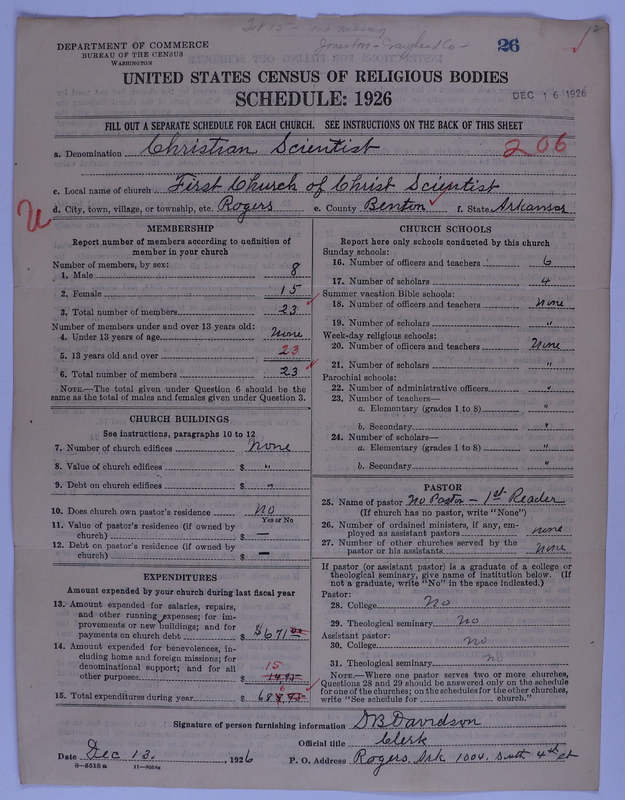 Jonesboro - Craighead Co -
DEPARTMENT OF COMMERCE
BUREAU OF THE CENSUS
WASHINGTON
26
UNITED STATES CENSUS OF RELIGIOUS BODIES
SCHEDULE: 1926
DEC 16 1926
FILL OUT A SEPARATE SCHEDULE FOR EACH CHURCH. SEE INSTRUCTIONS ON THE BACK OF THIS SHEET
a. Denomination Christian Scientist
206
c. Local name of church First Church of Christ Scientist
d. City, town, village, or township, etc. Rogers e. County Benton f. State Arkansas
MEMBERSHIP
Report number of members according to definition of
member in your church
Number of members, by sex:
1. Male 8
2. Female 15
3. Total number of members 23
Number of members under and over 13 years old:
4. Under 13 years of age None
5. 13 years old and over 23
6. Total number of members 23
NOTE.—The total given under Question 6 should be the
same as the total of males and females given under Question 3.
CHURCH BUILDINGS
See instructions, paragraphs 10 to 12
7. Number of church edifices None
8. Value of church edifices $ "
9. Debt on church edifices $ "
10. Does church own pastor's residence No
Yes or No
11. Value of pastor's residence (if owned by
church) $ —
12. Debt on pastor's residence (if owned by
church) $ —
EXPENDITURES
Amount expended by your church during last fiscal year
13. Amount expended for salaries, repairs,
and other running expenses; for im-
provements or new buildings; and for
payments on church debt $ $671
14. Amount expended for benevolences, in-
cluding home and foreign missions; for
denominational support; and for all
other purposes $ 15
15. Total expenditures during year $ 686
CHURCH SCHOOLS
Report here only schools conducted by this church
Sunday schools:
16. Number of officers and teachers 6
17. Number of scholars 4
Summer vacation Bible schools:
18. Number of officers and teachers None
19. Number of scholars "
Week-day religious schools:
20. Number of officers and teachers None
21. Number of scholars "
Parochial schools:
22. Number of administrative officers "
23. Number of teachers—
a. Elementary (grades 1 to 8) "
b. Secondary "
24. Number of scholars—
a. Elementary (grades 1 to 8) "
b. Secondary "
PASTOR
25. Name of pastor No Pastor - 1st Reader
(If church has no pastor, write "None")
26. Number of ordained ministers, if any, em-
ployed as assistant pastors none
27. Number of other churches served by the
pastor or his assistants None
If pastor (or assistant pastor) is a graduate of a college or
theological seminary, give name of institution below. (If
not a graduate, write "No" in the space indicated.)
Pastor:
28. College No
29. Theological seminary No
Assistant pastor:
30. College No
31. Theological seminary No
NOTE.—Where one pastor serves two or more churches,
Questions 28 and 29 should be answered only on the schedule
for one of the churches; on the schedules for the other churches,
write "See schedule for church."
Signature of person furnishing information D B Davidson
Official title Clerk
Date Dec 13, 1926 P. O. Address Rogers, Ark 1004. South 4th st
8-5518a